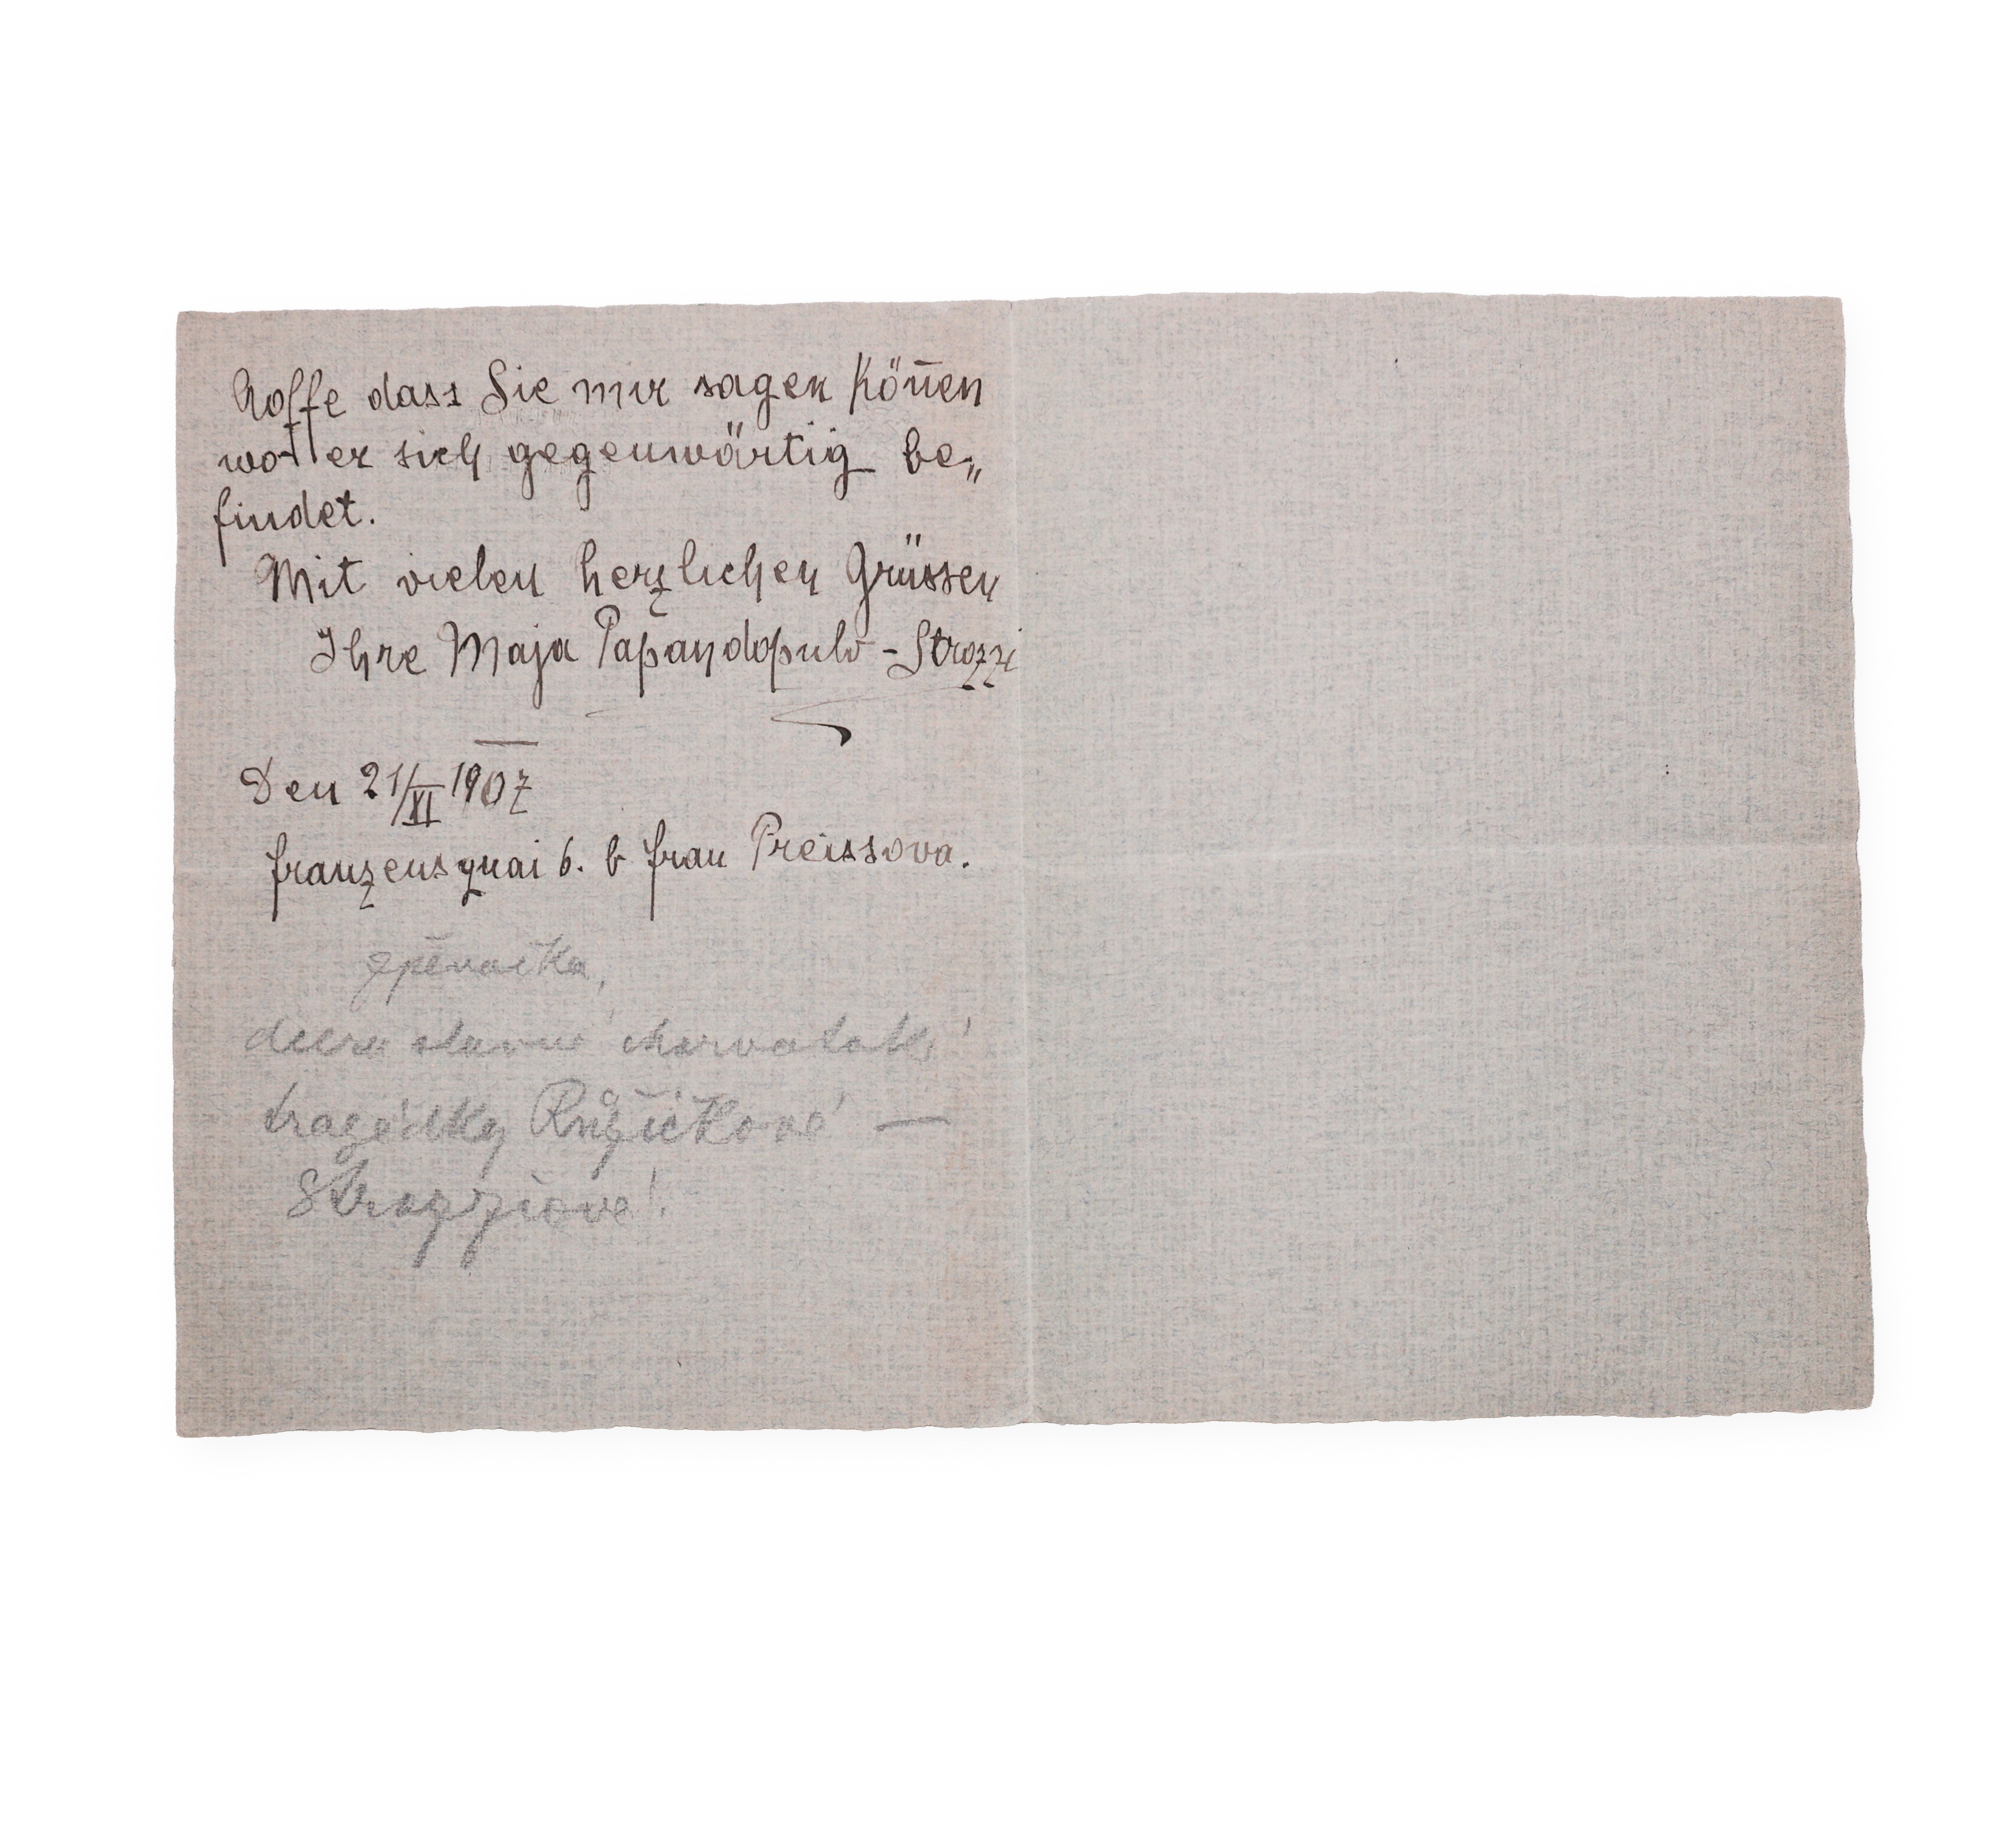 hoffe dass Sie mir sagen kön̄en
wo er sich gegenwärtig be„
findet.
Mit vielen herzlichen Grüssen
Ihre Maja Papandopulo - Strozzi
Den 21/XI 1907
Franzensquai 6. b Frau Preissova.
zpěvačka,
dcera slavné charvatské
tragédky Růžičkové —
Strozziové!